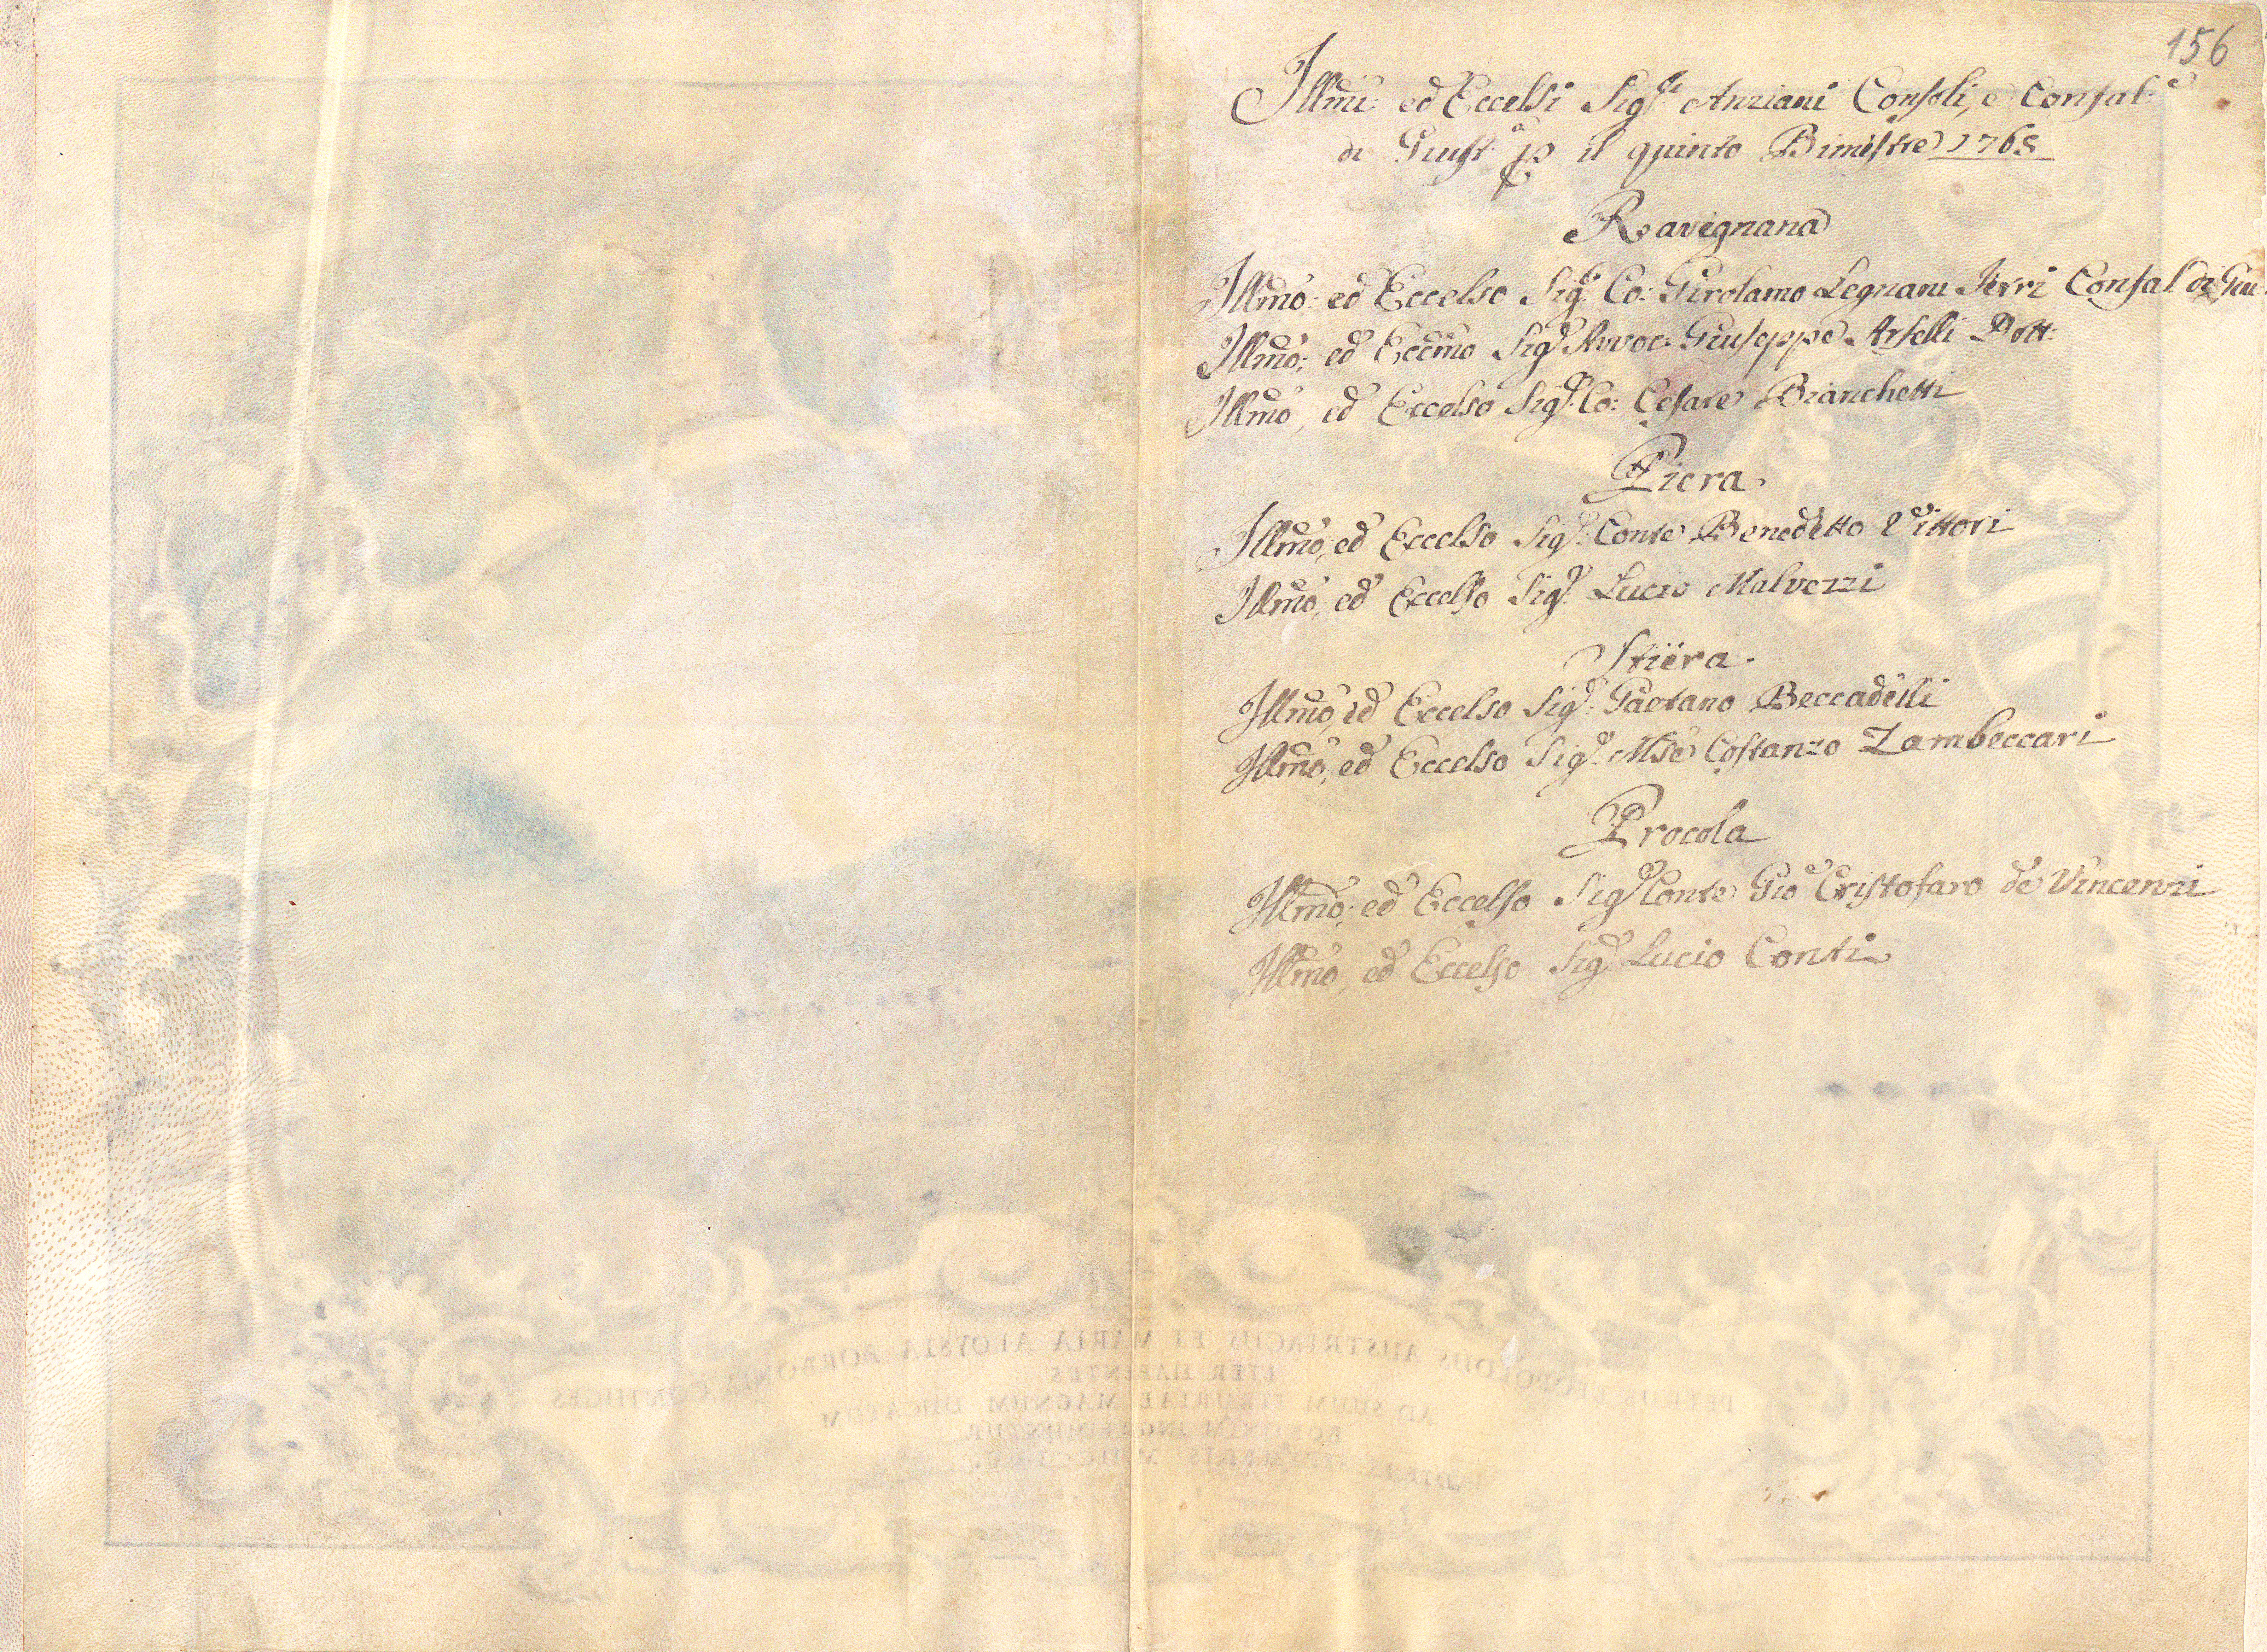 156
Illmi: ed Eccelsi Sig.ri Anziani Consoli, e Confal.e
di Giust.a p il quinto Bimestre 1765
Ravignana
Illmo: ed Eccelso Sig.r Co: Girolamo Legnani Ferri Confal di Giu.
Illmo; ed Eccmo Sig.r Avvoc: Giuseppe Arselli Dott:
Illmo, ed Eccelso Sig.r Co: Cesare Bianchetti
Piera.
Illmo, ed Eccelso Sig.r Conte Benedetto Vittori
Illmo, ed Eccelso Sig.r Lucio Malvezzi
Stiera.
Illmo, ed Eccelso Sig.r Gaetano Beccadelli
Illmo, ed Eccelso Sig.r Mse Costanzo Zambeccari
Procola
Illmo; ed Eccelso Sig.r Conte Gio Cristofaro de Vincenzi
Illmo, ed Eccelso Sig.r Lucio Conti
PETRUS LEOPOLDUS AUSTRIACUS ET MARIA ALOYSIA BORBONIA CONIUGES
ITER HABENTES
AD SUUM ETRURIAE MAGNUM DUCATUM
BONONIAM INGREDIUNTUR